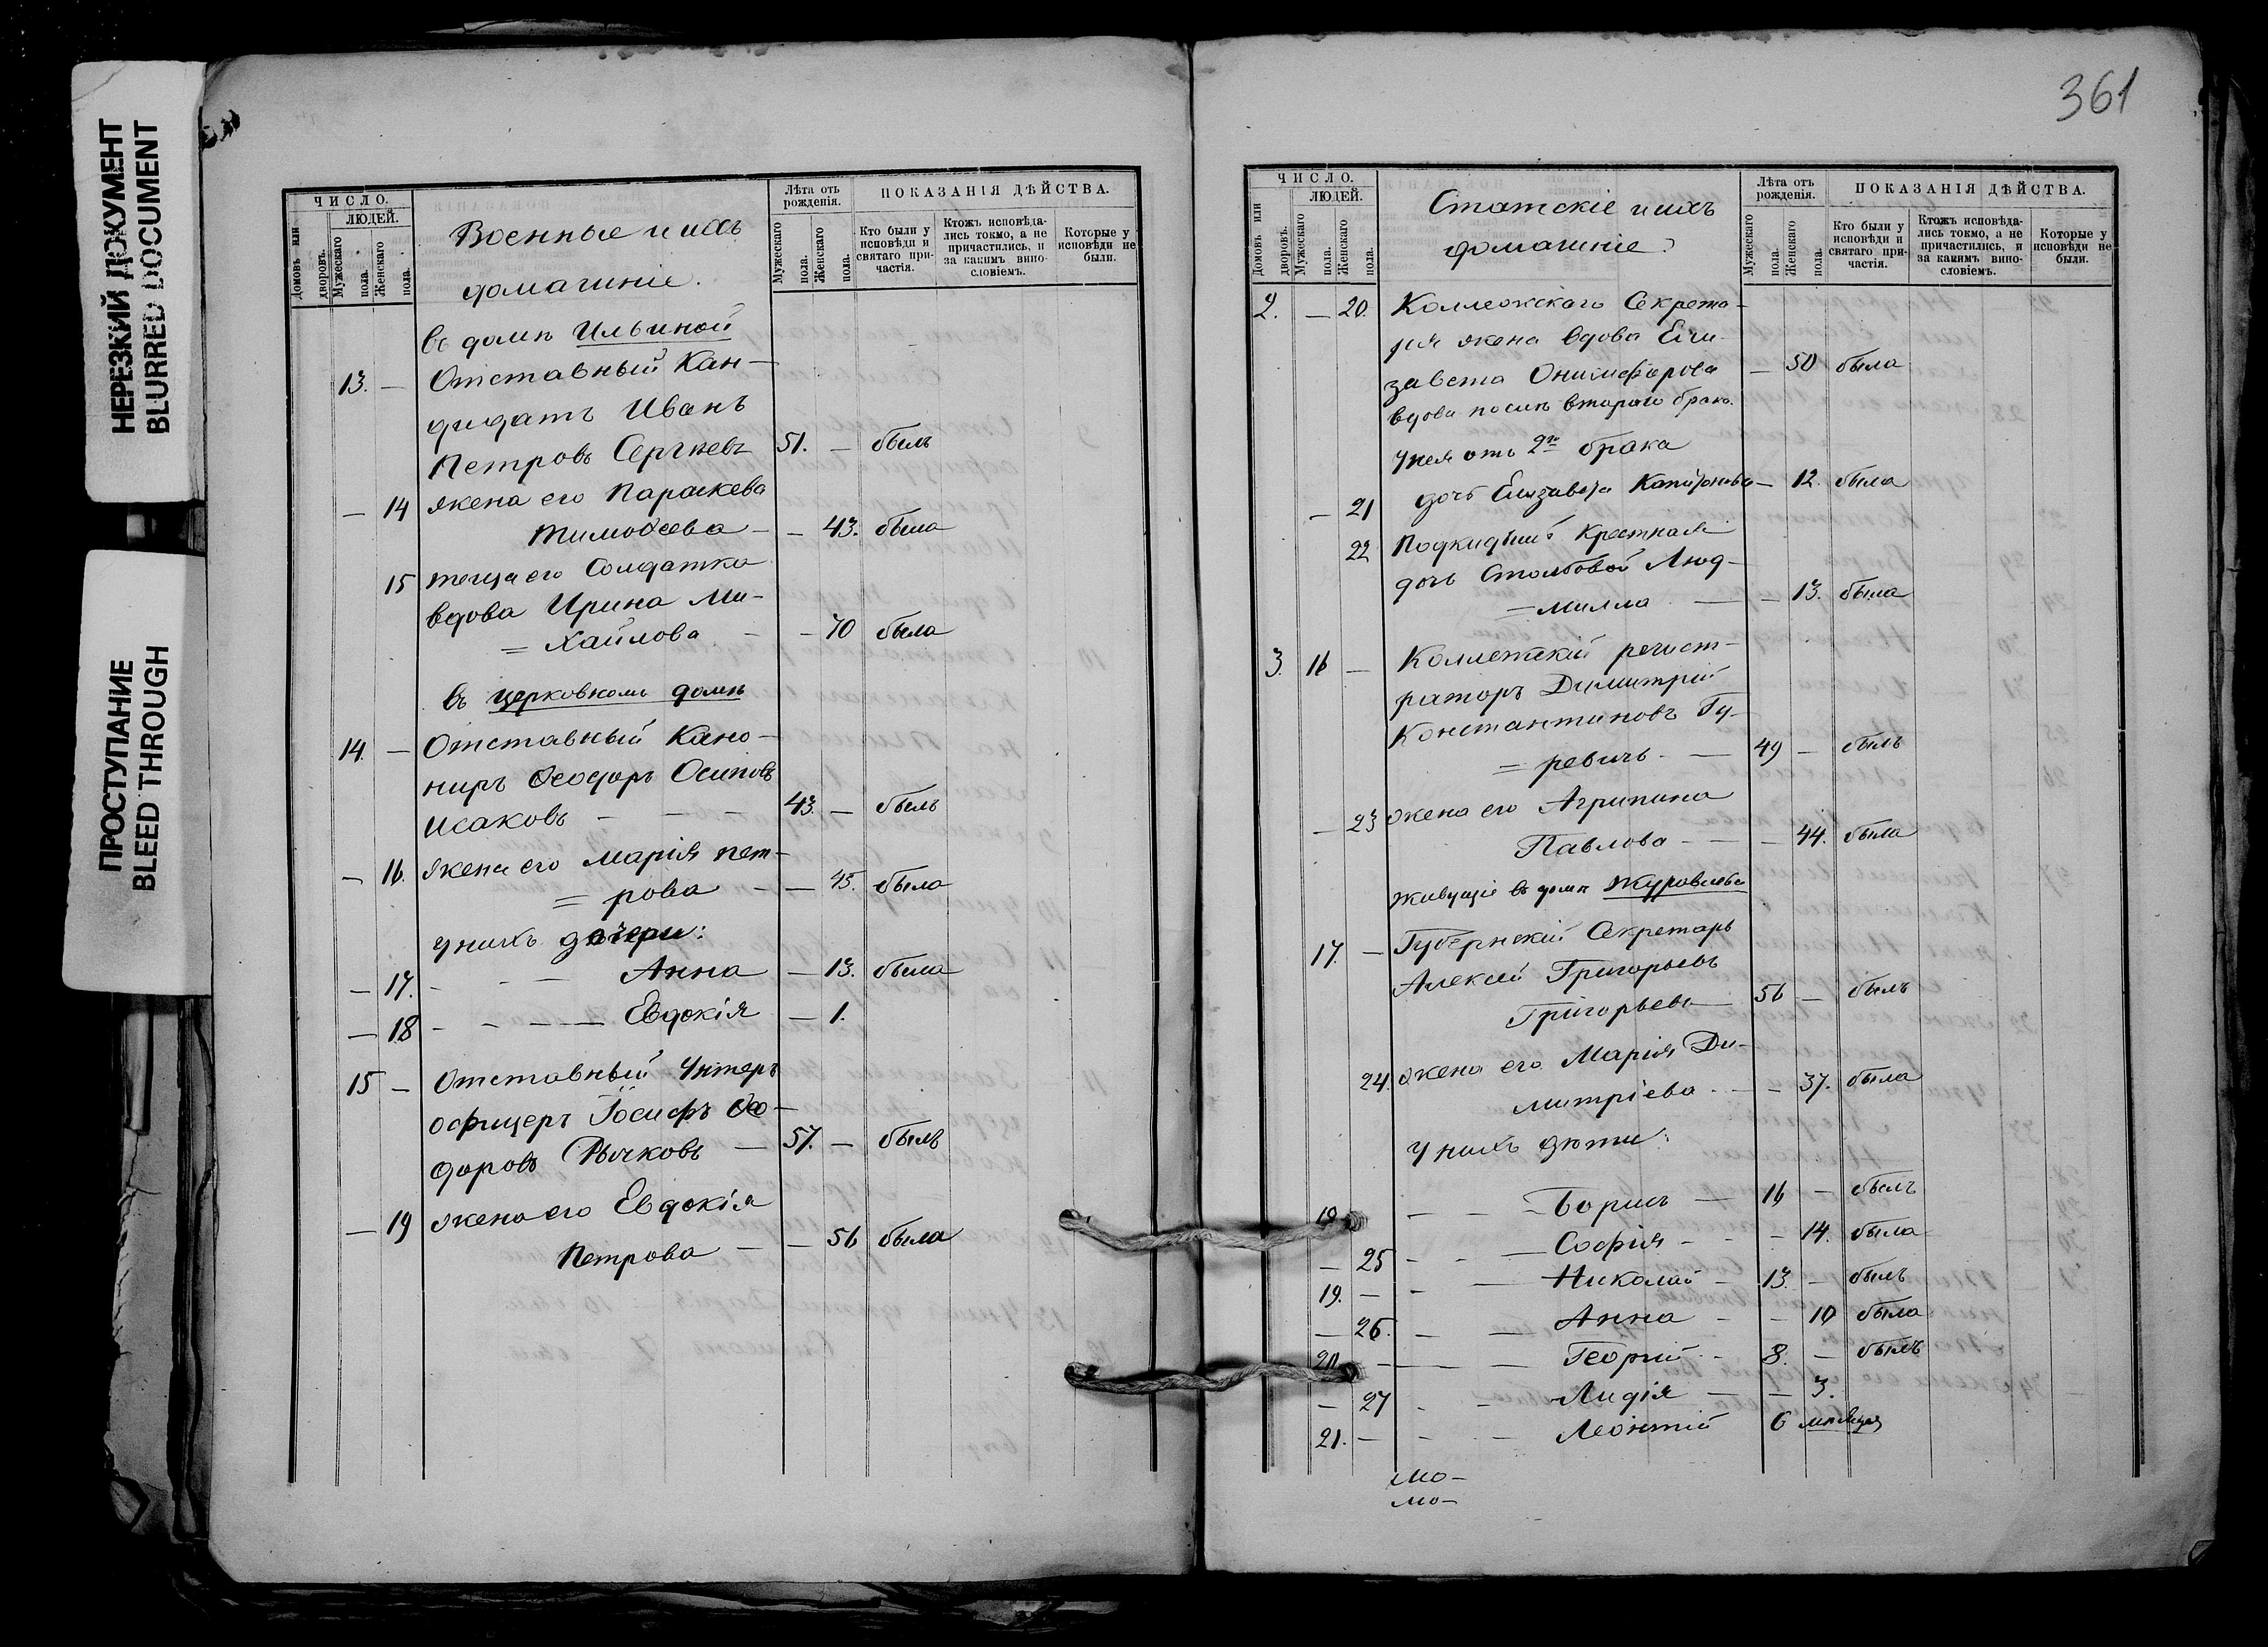 361
НЕРЕЗКИЙ ДОКУМЕНТ
BLURRED DOCUMENT
ПРОСТУПАНИЕ
BLEED THROUGH
ЧИСЛО.
ЛЮДЕЙ.
Домовъ или дворовъ.
Мужескаго пола.
Женскаго пола.
Военные и ихъ
домашніе.
Лѣта отъ рожденія.
Мужескаго пола.
Женскаго пола.
ПОКАЗАНІЯ ДѢЙСТВА.
Кто были у исповѣди и святаго причастія.
Ктожъ исповѣдались токмо, а не причастились, и за какимъ винословіемъ.
Которые у исповѣди не были.
въ домѣ Ильиной
13. — Отставный Кан-
дидатъ Иванъ
Петровъ Сергѣевъ 51. — былъ
— 14 жена его Параскева
Тимоѳеева — — 43. была
15 теща его Солдатка
вдова Ирина Ми-
= хайлова — — 70 была
въ церковномъ домѣ
14. — Отставный Кано-
ниръ Ѳеодоръ Осиповъ
Исаковъ — — — 43. — былъ
— 16. жена его Марія Пет-
= рова — — 45. была
у нихъ дочери:
— 17. — — Анна — 13. была
— 18 — — — — Евдокія — 1.
15 — Отставный Унтеръ
офицеръ Іосифъ Ѳео-
доровъ Рычковъ — 57. — былъ
— 19 жена его Евдокія
Петрова — — 56 была
ЧИСЛО.
ЛЮДЕЙ.
Домовъ или дворовъ.
Мужескаго пола.
Женскаго пола.
Статскіе и ихъ
домашніе.
Лѣта отъ рожденія.
Мужескаго пола.
Женскаго пола.
ПОКАЗАНІЯ ДѢЙСТВА.
Кто были у исповѣди и святаго причастія.
Ктожъ исповѣдались токмо, а не причастились, и за какимъ винословіемъ.
Которые у исповѣди не были.
2. — 20. Коллежскаго Секрета-
ря жена вдова Ели-
завета Онисифорова — 50 была
вдова послѣ втораго брака.
У нея отъ 2го брака
— 21 дочь Елизавета Капитонова — 12. была
22 Подкидышъ Крестная
дочь Столбовой Люд-
= мила — — 13. была
3. 16 — Коллежскій регист-
раторъ Димитрій
Константиновъ Гу-
= ревичъ — 49 — былъ
— 23 жена его Агрипина
Павлова — — — 44. была
Живущіе въ домѣ Журавлева
17. — Губернскій Секретарь
Алексѣй Григорьевъ
Григорьевъ — 56 — былъ
24. жена его Марія Ди-
митріева — — 37. была
У нихъ дѣти:
18 — — — Борисъ — 16 — былъ
— 25 — — — Софія — — 14. была
19. — — — Николай — 13. — былъ
— 26. — — Анна — — 10 была
20 — — — — Георгій — 8. — былъ
— 27 — — Лидія — — 3.
21. — — — Леонтій 6 мѣсяцевъ
Мо-
Мо-